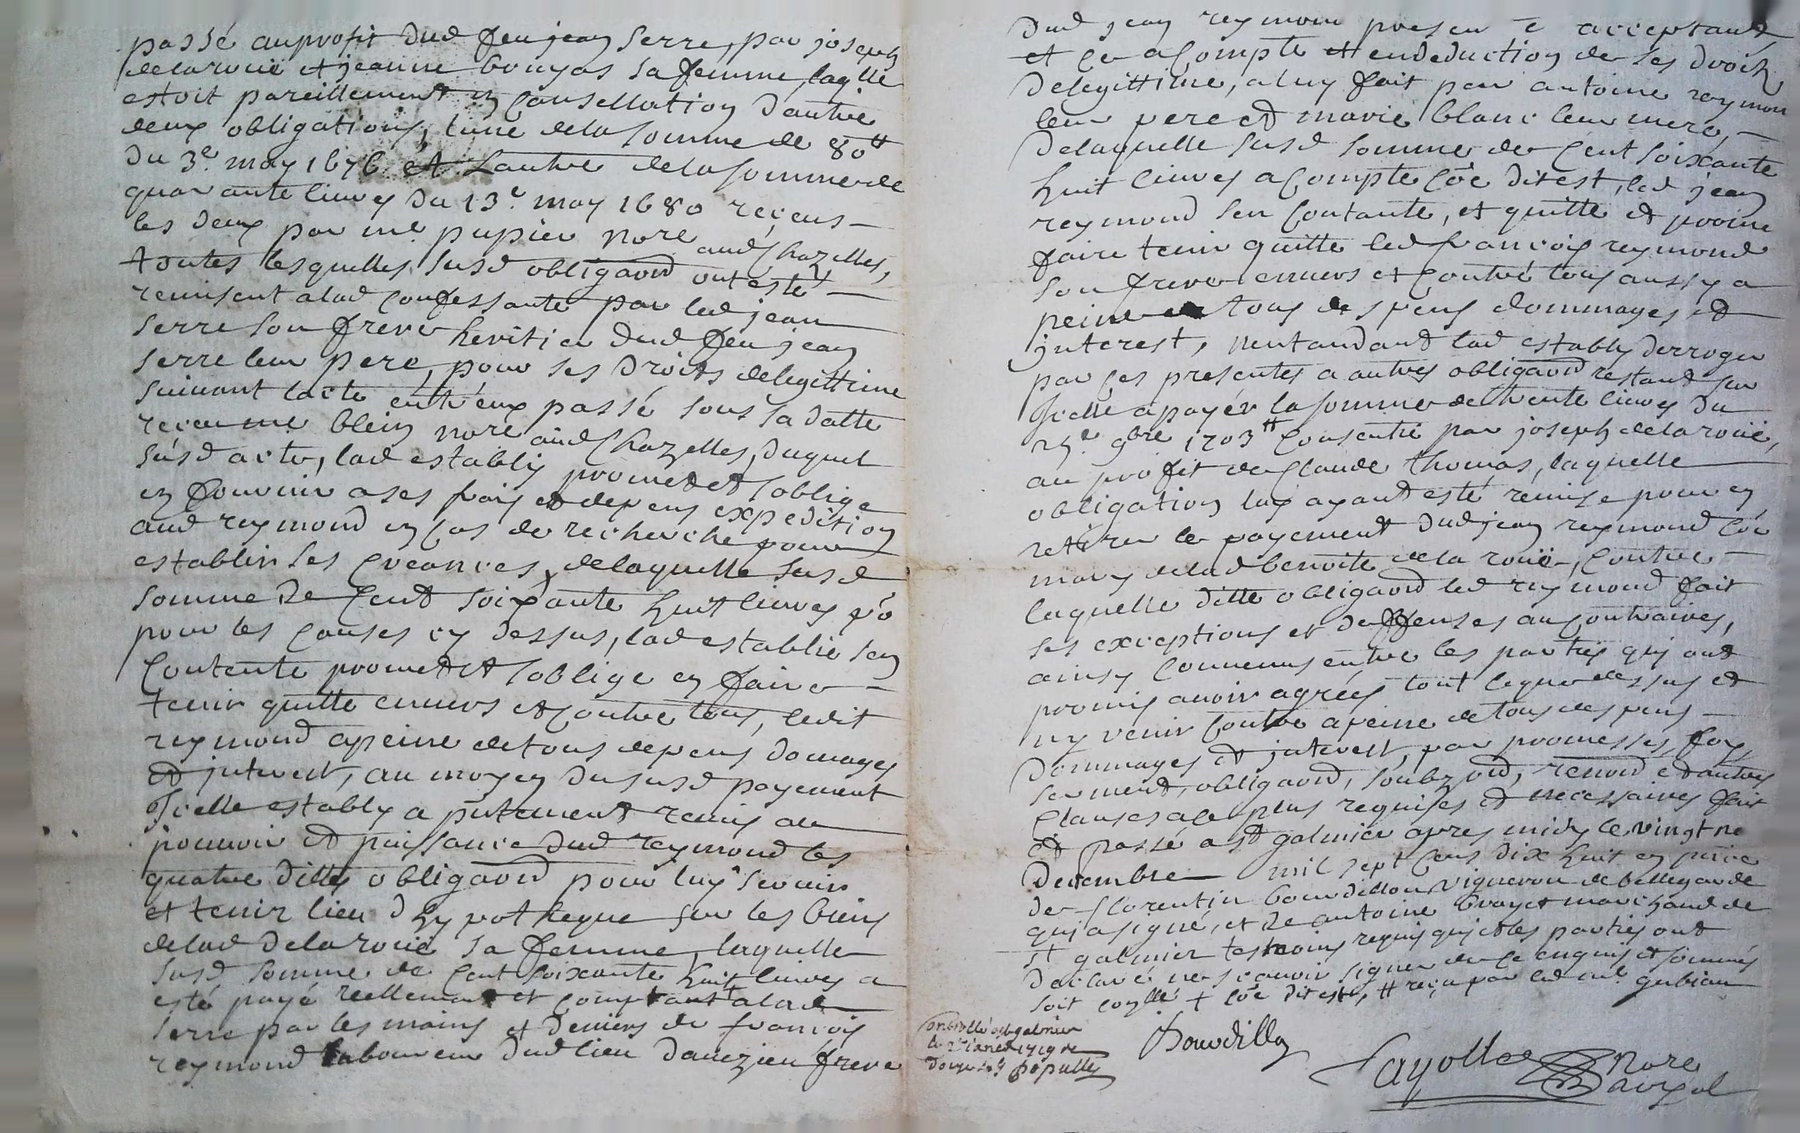 passé au profit dud feu jean serre, par joseph
delaroüe et jeanne bouyas sa femme laqlle
estoit pareillement en Cansellation d'autre
deux obligations, l'une de la somme de 80tt
du 3e may 1676 et Lautre de la somme de
quarante livres du 13e may 1680 reçeus
les deux par me papier nore aud Chazelles,
toutes lesquelles susd obligaôns ont esté
remisent a lad Confessante par led jean
serre son frere heritier dud feu jean
serre leur pere, pour ses droits de legittime
suivant lacte entr'eux passé sous sa datte
receu me blein nore aud Chazelles, duquel
susd acte, lad establis promet et soblige
en fournir a ses frais et depens expedition
aud reymond en cas de recherche pour
establir ses creances, de laquelle susd
somme de Cent soixante huit livres po
pour les Causes cy dessus, lad establie sen
Contente promet et soblige en faire
tenir quitte envers et contre tous, ledit
reymond a peine de tous depens domages
et interest, au moyen du susd payement
Icelle establis a pntement remis au
pouvoir et puissance dud reymond les
quatre dittes obligaôns pour luy servir
et tenir lieu d'hypotheque sur les biens
de lad delaroüe sa femme, laquelle
susd somme de Cent soixante huit livres a
esté payé reellement et comptant a lad
serre par les mains et deniers de françois
reymond laboureur dud lieu davezieu frere
dud jean reymond presen et acceptant
et ce a Compte et en deduction de ses droits
de legittime, a luy fait par antoine reymon
leur pere et marie blanc leur mere,
de laquelle susd somme de Cent soixante
huit livres a Compte Côe dit est, led jean
reymond sen Contante, et quitte et promet
faire tenir quitte led françois reymond
son frere envers et Contre tous aussy a
peine tous despens dommages et
interest, nentandant lad establis derroger
par Ces presentes a autres obligaôns restant sur
Icelle a payér la somme de trente livres du
9bre 1703 Consentie par joseph delaroüe,
au profit de Claude thomas, laquelle
obligation luy ayant esté remise pour en
rettirer le payement dud jean reymond Côe
mary de lad benoite de la roüe, Contre
laquelle ditte obligaôn led reymond fait
ses exceptions et deffenses au Contraires,
ainsy Convenus entre les parties qui ont
promis avoir agrées tout ce que dessus et
ny venir Contre a peine de tous despens
dommages et interest, par promesses, foy,
serment, obligaôns, soubzôns, renôns et autres
Clauses a ce plus requises et necessaires fait
et passé a st galmier apres midy le vingt ne
decembre mil sept Cens dix huit en pnce
de florentin bourdillon vigneron de bellegarde
qui a signé, et de antoine marchand de
st galmier tesmoins requis qui et les parties ont
declaré ne sçavoir signer de ce enquis et sommés
soit coyllé + Côe dit est, # reçu par led me gubian
Controllé a st galmier
Bourdillon
Fayolle Nore
Royal